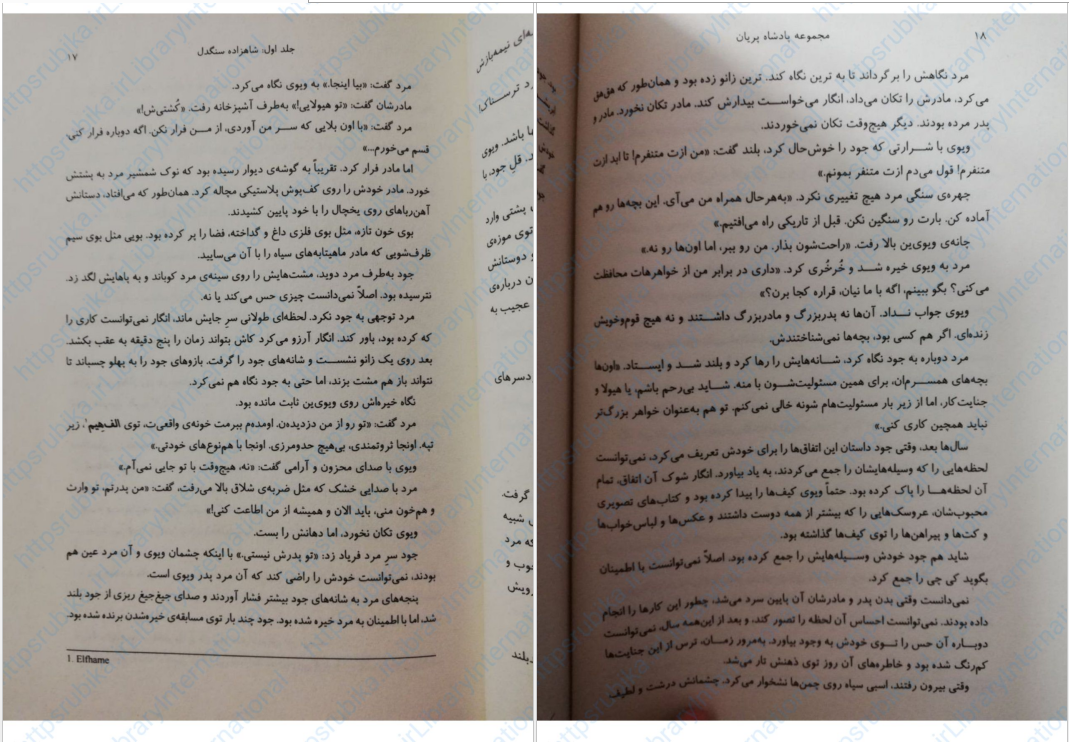 ۱۷
جلد اول: شاهزاده سنگدل
مرد گفت: «بیا اینجا.» به ویوی نگاه می‌کرد.
مادرشان گفت: «تو هیولایی!» به‌طرف آشپزخانه رفت. «کُشتی‌ش!»
مرد گفت: «با اون بلایی که سر من آوردی، از من فرار نکن. اگه دوباره فرار کنی،
قسم می‌خورم...»
اما مادر فرار کرد. تقریباً به گوشه‌ی دیوار رسیده بود که نوک شمشیر مرد به پشتش
خورد. مادر خودش را روی کف‌پوش پلاستیکی مچاله کرد. همان‌طور که می‌افتاد، دستانش
آهن‌رباهای روی یخچال را با خود پایین کشیدند.
بوی خون تازه، مثل بوی فلزی داغ و گداخته، فضا را پر کرده بود. بویی مثل بوی سیم
ظرف‌شویی که مادر ماهیتابه‌های سیاه را با آن می‌سایید.
جود به‌طرف مرد دوید، مشت‌هایش را روی سینه‌ی مرد کوباند و به پاهایش لگد زد.
نترسیده بود. اصلاً نمی‌دانست چیزی حس می‌کند یا نه.
مرد توجهی به جود نکرد. لحظه‌ای طولانی سر جایش ماند، انگار نمی‌توانست کاری را
که کرده بود، باور کند. انگار آرزو می‌کرد کاش بتواند زمان را پنج دقیقه به عقب بکشد.
بعد روی یک زانو نشست و شانه‌های جود را گرفت. بازوهای جود را به پهلو چسباند تا
نتواند باز هم مشت بزند، اما حتی به جود نگاه هم نمی‌کرد.
نگاه خیره‌اش روی ویوی‌ین ثابت مانده بود.
مرد گفت: «تو رو از من دزدیدهن. اومدهم ببرمت خونه‌ی واقعی‌ت، توی الف‌هیم¹، زیر
تپه. اونجا ثروتمندی، بی‌هیچ حدومرزی. اونجا با هم‌نوع‌های خودتی.»
ویوی با صدای محزون و آرامی گفت: «نه، هیچ‌وقت با تو جایی نمی‌آم.»
مرد با صدایی خشک که مثل ضربه‌ی شلاق بالا می‌رفت، گفت: «من پدرتم، تو وارث
و هم‌خون منی، باید الان و همیشه از من اطاعت کنی!»
ویوی تکان نخورد، اما دهانش را بست.
جود سر مرد فریاد زد: «تو پدرش نیستی.» با اینکه چشمان ویوی و آن مرد عین هم
بودند، نمی‌توانست خودش را راضی کند که آن مرد پدر ویوی است.
پنجه‌های مرد به شانه‌های جود بیشتر فشار آوردند و صدای جیغ‌جیغ ریزی از جود بلند
شد، اما با اطمینان به مرد خیره شده بود. جود چند بار توی مسابقه‌ی خیره‌شدن برنده شده بود.
1. Elfhame
۱۸
مجموعه پادشاه پریان
مرد نگاهش را برگرداند تا به ترین نگاه کند. ترین زانو زده بود و همان‌طور که هق‌هق
می‌کرد، مادرش را تکان می‌داد، انگار می‌خواست بیدارش کند. مادر تکان نخورد. مادر و
پدر مرده بودند. دیگر هیچ‌وقت تکان نمی‌خوردند.
ویوی با شرارتی که جود را خوش‌حال کرد، بلند گفت: «من ازت متنفرم! تا ابد ازت
متنفرم! قول می‌دم ازت متنفر بمونم.»
چهره‌ی سنگی مرد هیچ تغییری نکرد. «به‌هرحال همراه من می‌آی. این بچه‌ها رو هم
آماده کن. بارت رو سنگین نکن. قبل از تاریکی راه می‌افتیم.»
چانه‌ی ویوی‌ین بالا رفت. «راحت‌شون بذار. من رو ببر، اما اون‌ها رو نه.»
مرد به ویوی خیره شد و خُرخُری کرد. «داری در برابر من از خواهرهات محافظت
می‌کنی؟ بگو ببینم، اگه با ما نیان، قراره کجا برن؟»
ویوی جواب نداد. آن‌ها نه پدربزرگ و مادربزرگ داشتند و نه هیچ قوم‌وخویش
زنده‌ای. اگر هم کسی بود، بچه‌ها نمی‌شناختندش.
مرد دوباره به جود نگاه کرد، شانه‌هایش را رها کرد و بلند شد و ایستاد. «اون‌ها
بچه‌های همسرم‌ان، برای همین مسئولیت‌شون با منه. شاید بی‌رحم باشم، یا هیولا و
جنایت‌کار، اما از زیر بار مسئولیت‌هام شونه خالی نمی‌کنم. تو هم به‌عنوان خواهر بزرگ‌تر
نباید همچین کاری کنی.»
سال‌ها بعد، وقتی جود داستان این اتفاق‌ها را برای خودش تعریف می‌کرد، نمی‌توانست
لحظه‌هایی را که وسیله‌هایشان را جمع می‌کردند، به یاد بیاورد. انگار شوک آن اتفاق، تمام
آن لحظه‌ها را پاک کرده بود. حتماً ویوی کیف‌ها را پیدا کرده بود و کتاب‌های تصویری
محبوب‌شان، عروسک‌هایی را که بیشتر از همه دوست داشتند و عکس‌ها و لباس‌خواب‌ها
و کت‌ها و پیراهن‌ها را توی کیف‌ها گذاشته بود.
شاید هم جود خودش وسیله‌هایش را جمع کرده بود. اصلاً نمی‌توانست با اطمینان
بگوید کی چی را جمع کرد.
نمی‌دانست وقتی بدن پدر و مادرشان آن پایین سرد می‌شد، چطور این کارها را انجام
داده بودند. نمی‌توانست احساس آن لحظه را تصور کند، و بعد از این‌همه سال، نمی‌توانست
دوباره آن حس را توی خودش به وجود بیاورد. به‌مرور زمان، ترس از این جنایت‌ها
کم‌رنگ شده بود و خاطره‌های آن روز توی ذهنش تار می‌شد.
وقتی بیرون رفتند، اسبی سیاه روی چمن‌ها نشخوار می‌کرد. چشمانش درشت و لطیف